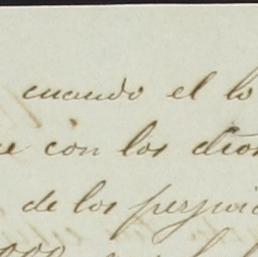 cuando el lo
e con los dio
de los perjuic